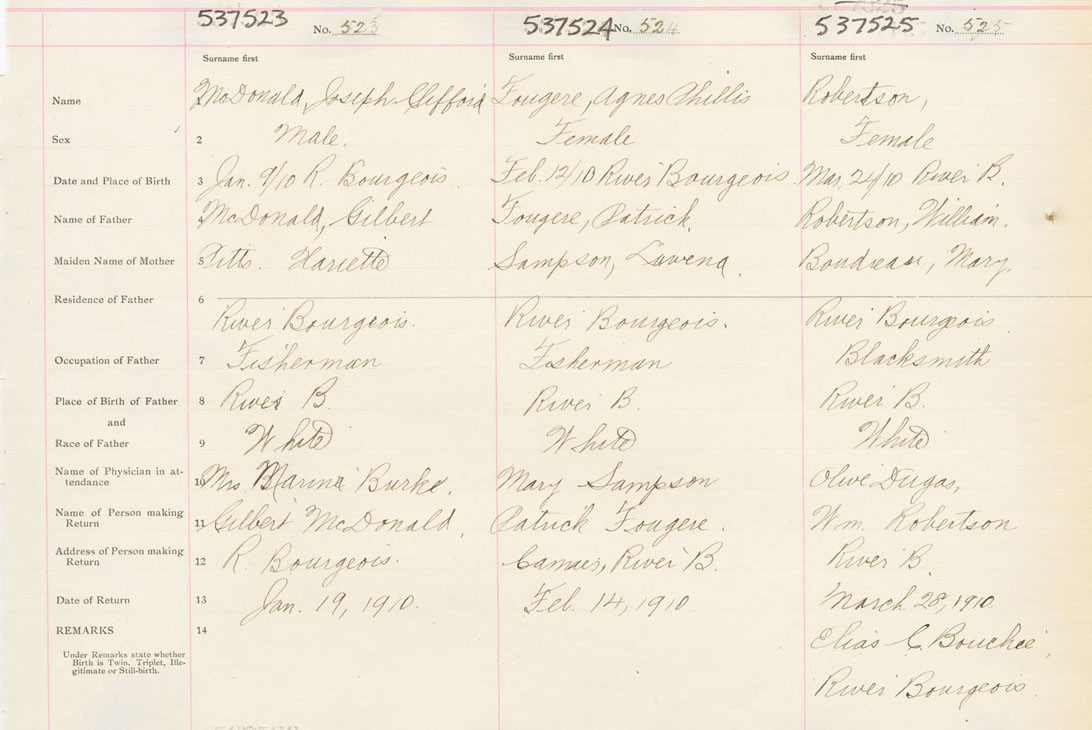 537523 No. 523 537524 No. 524 537525 No. 525
Surname first Surname first Surname first
Name 1 McDonald, Joseph Clifford Fougere, Agnes Phillis Robertson,
Sex 2 Male. Female Female
Date and Place of Birth 3 Jan. 9/10 R. Bourgeois. Feb. 12/10 River Bourgeois Mar. 24/10 River B.
Name of Father 4 McDonald, Gilbert Fougere, Patrick. Robertson, William.
Maiden Name of Mother 5 Fitts. Hariette Sampson, Lavena. Boudreau, Mary.
Residence of Father 6
River Bourgeois. River Bourgeois. River Bourgeois
Occupation of Father 7 Fisherman Fisherman Blacksmith
Place of Birth of Father 8 River B. River B. River B.
and
Race of Father 9 White White White
Name of Physician in at-
tendance 10 Mrs. Marine Burke. Mary Sampson Olive Dugas,
Name of Person making
Return 11 Gilbert McDonald, Patrick Fougere. Wm. Robertson
Address of Person making
Return 12 R. Bourgeois. River B. River B.
Date of Return 13 Jan. 19, 1910. Feb. 14, 1910. March 28, 1910.
REMARKS 14 Elias C. Bouchie,
Under Remarks state whether
Birth is Twin, Triplet, Ille-
gitimate or Still-birth.
River Bourgeois.